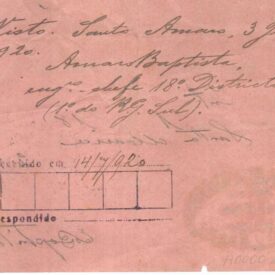 Visto. Santo Amaro, 3 J
920.
Amaro Baptista,
engro chefe 18º Districto
(1º do R.G. Sul).
cebido em 14/7/920
spondido